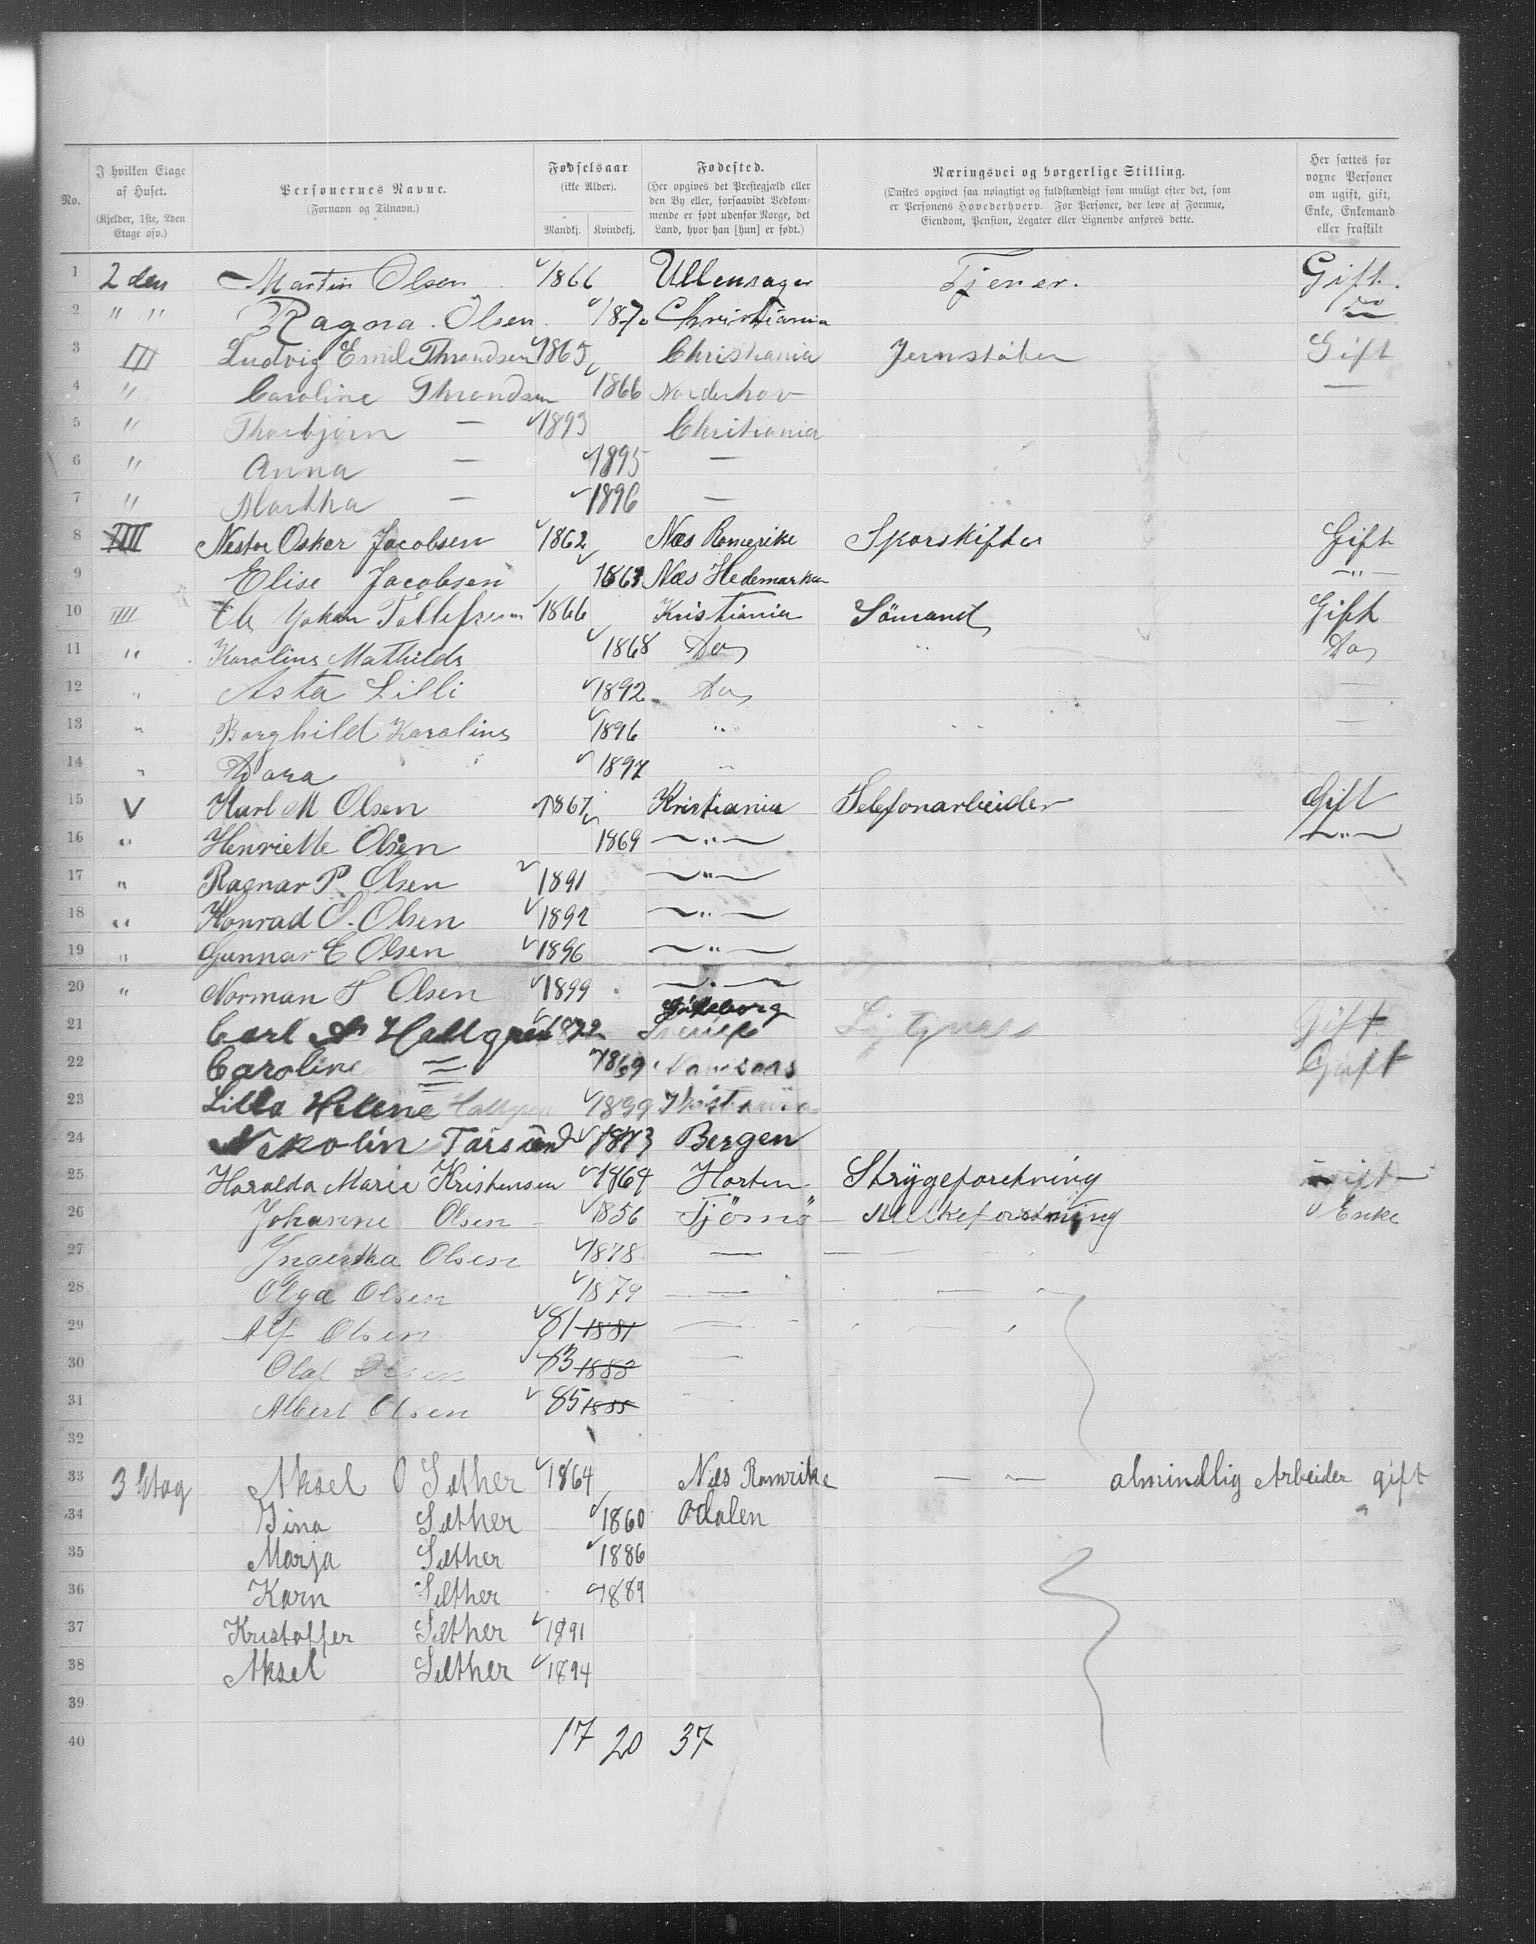 No. | I hvilken Etage af Huset. (Kjelder, 1ste, 2den Etage osv.) | Personernes Navne. (Fornavn og Tilnavn.) | Fødselsaar (ikke Alder). Mandkj. Kvindekj. | Fødested. (Her opgives det Prestegjæld eller den By eller, forsaavidt Bedkommende er født udenfor Norge, det Land, hvor han [hun] er født.) | Næringsvei og borgerlige Stilling. (Ønskes opgivet saa nøiagtigt og fuldstændigt som muligt efter det, som er Personens Hovederhverv. For Personer, der leve af Formue, Eiendom, Pension, Legater eller Lignende anføres dette. | Her sættes for voxne Personer om ugift, gift, Enke, Enkemand eller fraskilt
1 2 den Martin Olsen 1866 Ullensager Tjener. Gift.
2 " " Ragna Olsen 1870 Christiania do
3 III Ludvig Emil Throndsen 1865 Christiania Jernstøber Gift
4 " Caroline Throndsen 1866 Norderhov —
5 " Thorbjørn — 1893 Christiania
6 " Anna — 1895 —
7 " Martha — 1896 —
8 IIII Nestor Oskar Jacobsen 1862 Næs Romerike Sporskifter Gift
9 Elise Jacobsen 1863 Næs Hedemarken — " —
10 IIII Johan Tollefsen 1866 Kristiania Sömand Gift
11 " Karoline Mathilde 1868 Do Do
12 " Asta Lilli 1892 Do —
13 " Borghild Karoline 1896 " —
14 " Dora 1897 "
15 V Karl M Olsen 1867 Kristiania Telefonarbeider Gift
16 " Henriette Olsen 1869 — " — — " —
17 " Ragnar P Olsen 1891 — " —
18 " Konrad O. Olsen 1892 — " —
19 " Gunnar E Olsen 1896 — " —
20 " Norman S Olsen 1899 — " —
21 Carl A Hallgren 1872 Göteborg Sverige Gift
22 Caroline = 1869 Namsaas Gift
23 Lilla Helene Hallgren 1899 Kristiania
24 Nikolin 1873 Bergen
25 Haralda Marie Kristensen 1864 Horten Strygeforetning ugift
26 Johanne Olsen 1856 Tjömö Melkeforetning Enke
27 Ingertha Olsen 1878 — —
28 Olga Olsen 1879 — —
29 Alf Olsen 81 1881 —
30 Olaf Olsen 83 1883 —
31 Albert Olsen 85 1885
32
33 3 Etag Aksel O Sæther 1864 Næs Romrike — — almindlig Arbeider gift
34 Gina Sæther 1860 Odalen "
35 Marja Sæther 1886
36 Karn Sæther 1889
37 Kristoffer Sæther 1891
38 Aksel Sæther 1894
39
40 17 20 37